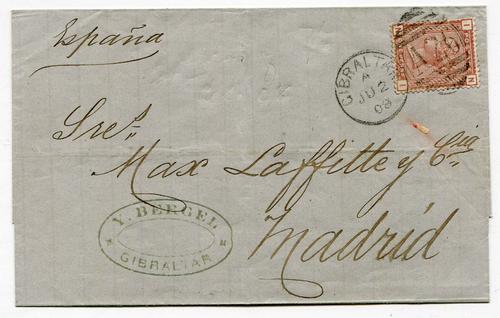 España
GIBRALTAR
A
JU 2
A26
Sres.
Max Laffitte y Cia
Madrid
Y. BERGEL
GIBRALTAR